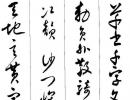 草書千字文
勅員外散騎
次韻 沙門懷
天地玄黃